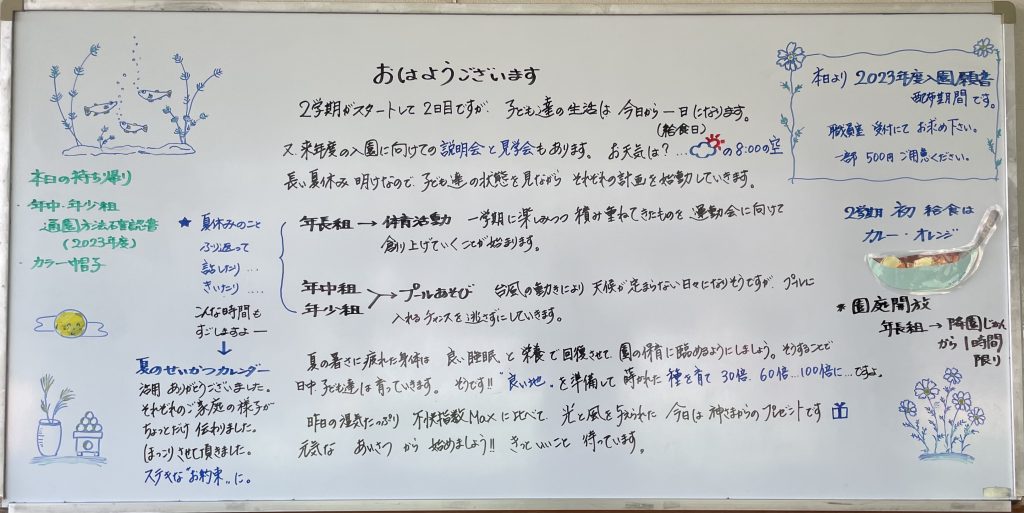 おはようございます
2学期がスタートして2日目ですが、子ども達の生活は今日から一日になります。
(給食日)
又、来年度の入園に向けての説明会と見学会もあります。お天気は?…の8:00の空
長い夏休み明けなので、子ども達の状態を見ながらそれぞれの計画を始動していきます。
本日より2023年度入園願書
配布期間です。
職員室受付にてお求め下さい。
一部500円ご用意ください。
本日の持ち帰り
・年中・年少組
通園方法確認書
(2023年度)
・カラー帽子
★夏休みのこと
ふり返って
話したり…
きいたり…
こんな時間も
すごしますよー
↓
夏のせいかつカレンダー
活用ありがとうございました。
それぞれのご家庭の様子が
ちょっとだけ伝わりました。
ほっこりさせて頂きました。
ステキな"お約束"に。
年長組→体育活動 一学期に楽しみつつ積み重ねてきたものを運動会に向けて
創り上げていくことが始まります。
年中組
年少組
→プールあそび 台風の動きにより天候が定まらない日々になりそうですが、プールに
入れるチャンスを逃さずにしていきます。
夏の暑さに疲れた身体は良い睡眠と栄養で回復させて園の保育に臨めるようにしましょう。そうすることで
日中子ども達は育っていきます。そうです!!"良い地"を準備して蒔かれた種を育て30倍、60倍…100倍に…ですよ。
昨日の湿気たっぷり不快指数Maxに比べて、光と風を与えられた今日は神さまからのプレゼントです
元気なあいさつから始めましょう!!きっといいこと待っています。
2学期初給食は
カレー・オレンジ
*園庭開放
年長組→降園じかん
から1時間
限り